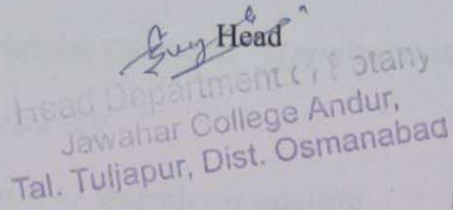 Head
Head Department of Botany
Jawahar College Andur,
Tal. Tuljapur, Dist. Osmanabad